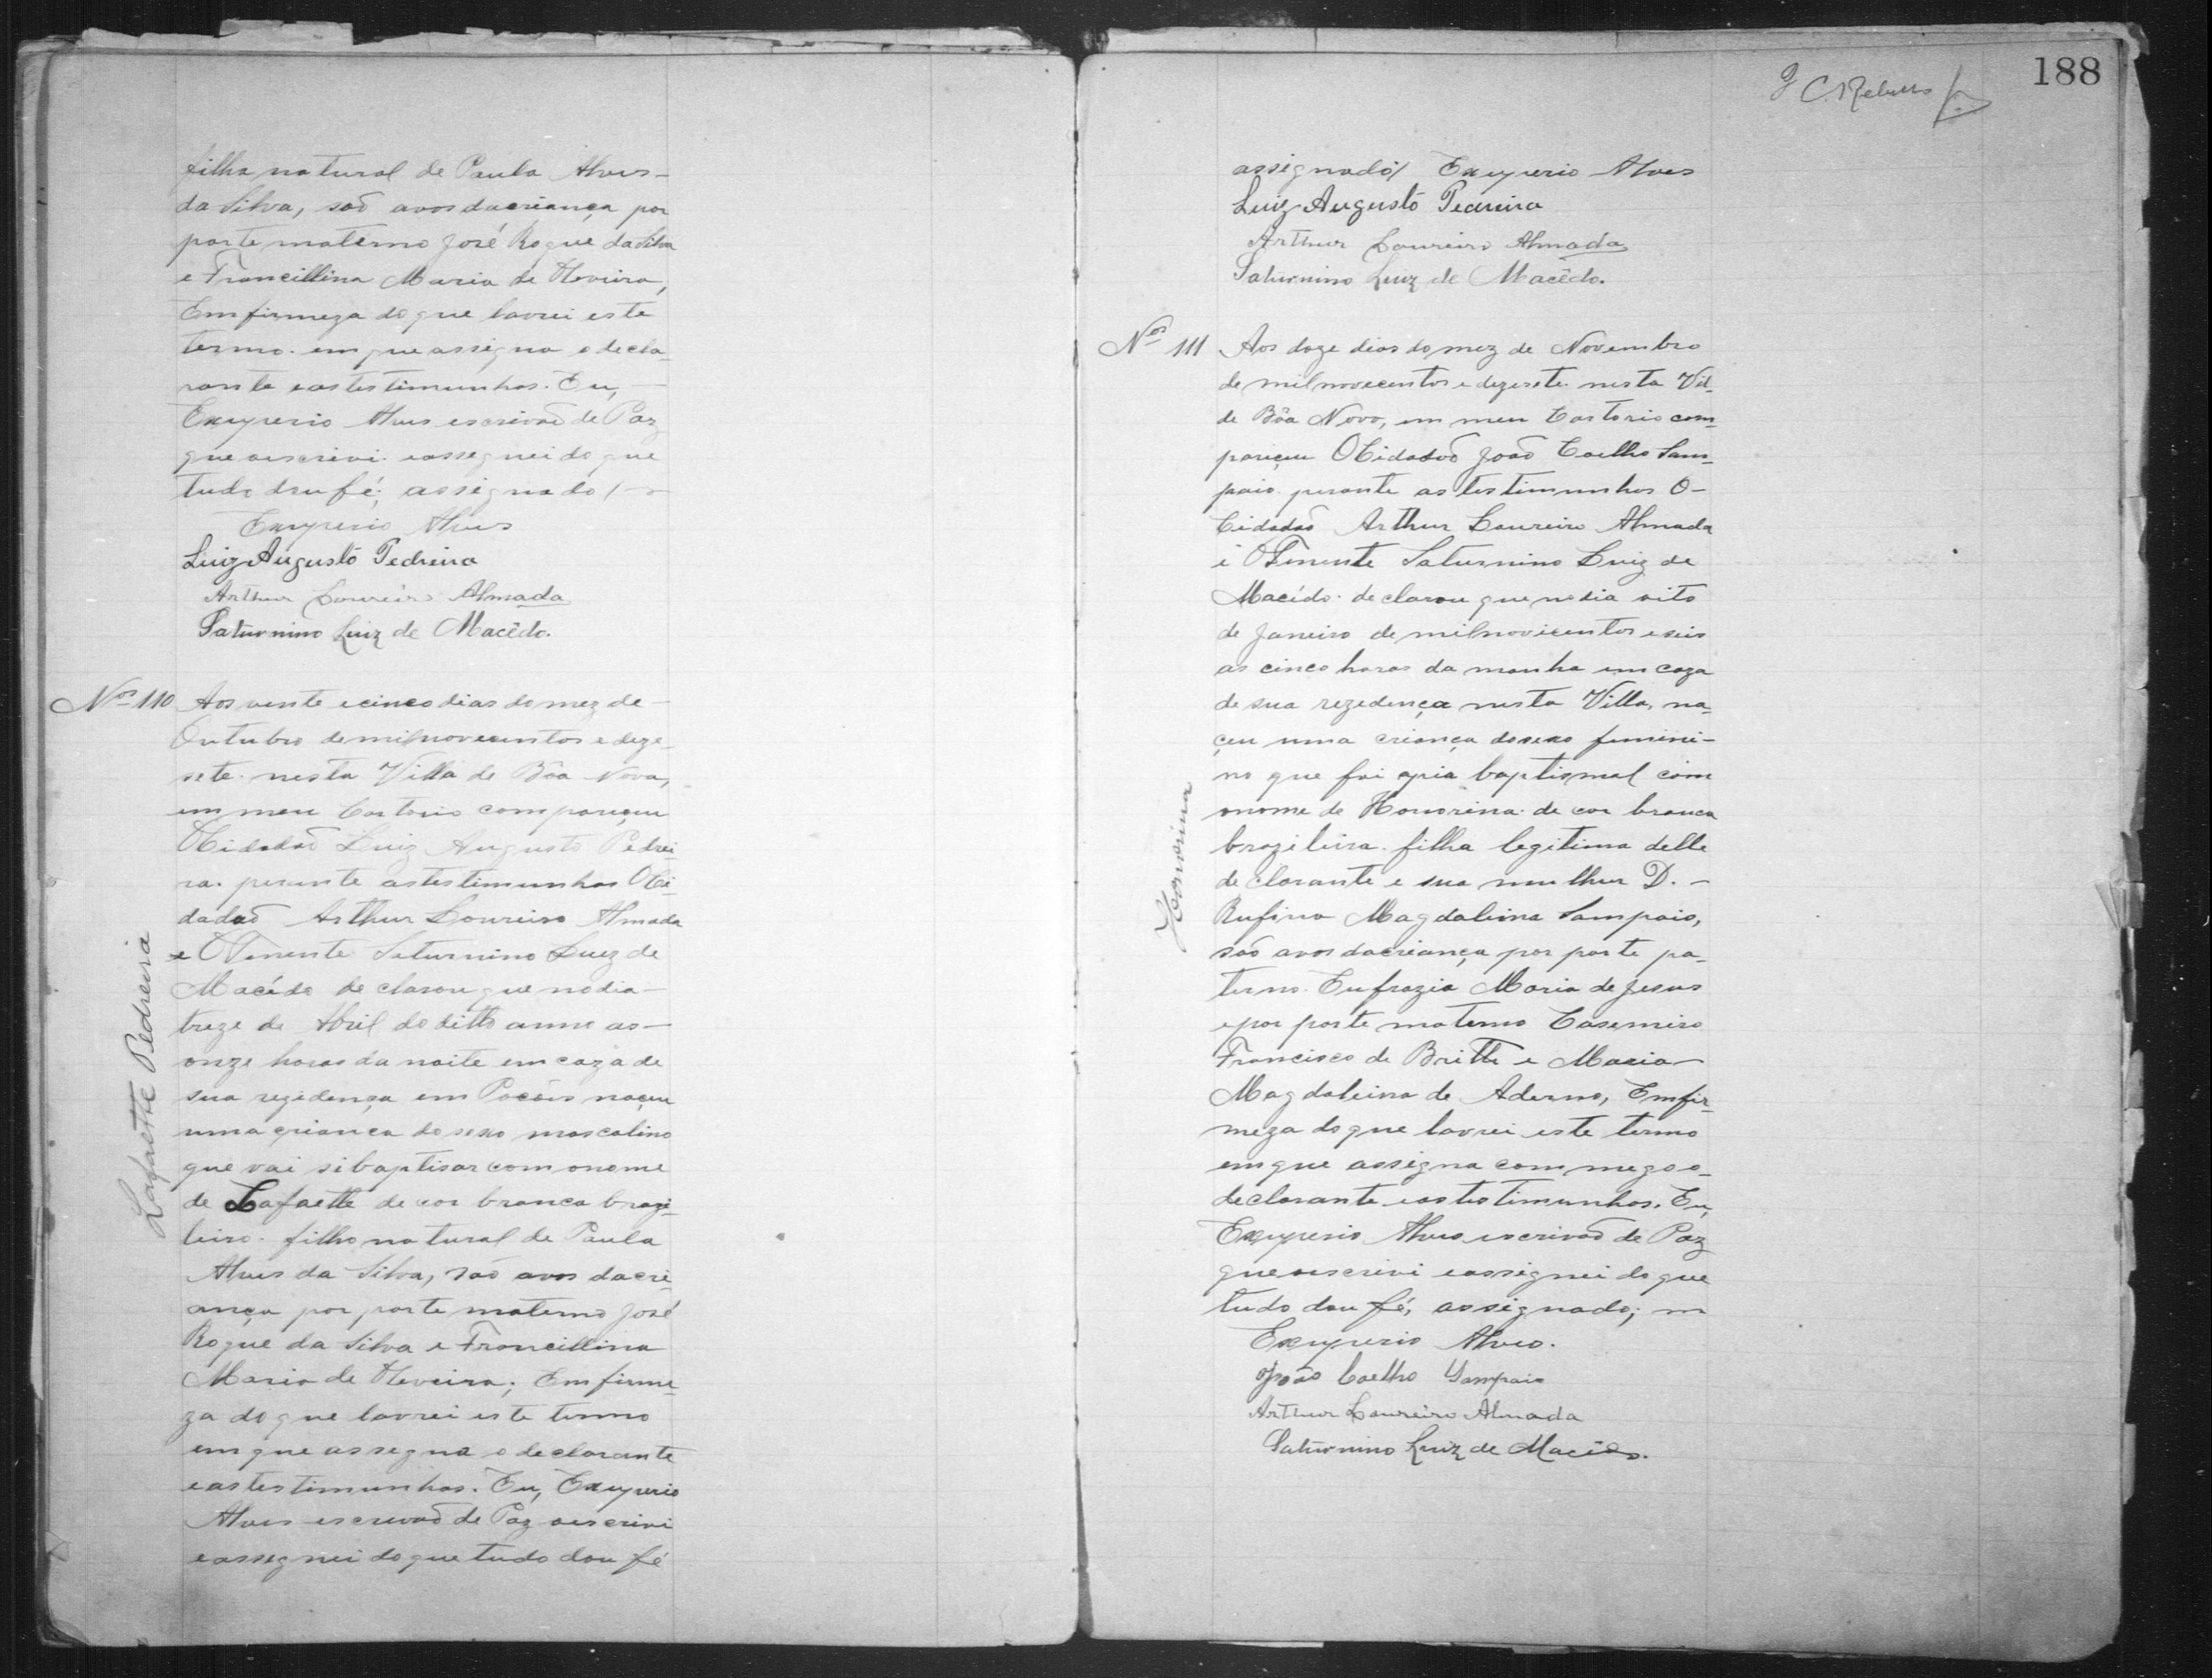 filha natural de Paula Alves-
da Silva, saõ avos dacriança por
parte materno José Roque da Silva
e Francillina Maria de Oliveira,
Em firmeza do que lavrei este
termo. em que assigna o decla-
rante e as testimunhas. Eu,
Exuperio Alves escrivaõ de Paz
que oescrivi e assegnei do que
tudo dou fé; assignado/
Exuperio Alves
Luiz Augusto Pedreira
Arthur Loureiro Almada
Saturnino Luiz de Macêdo.
Nos 110 Aos vente e cinco dias do mez de-
Outubro de mil novecentos e deze-
sete. nesta Villa de Bôa Nova,
em meu Cartorio compareçeu
O Cidadaõ Luiz Augusto Pedrei-
ra. perante as testimunhas O Ci-
dadaõ Arthur Loureiro Almada
e O Tenente Saturnino Luiz de
Macêdo declarou que no dia-
treze de Abril do ditto anno as-
onze horas da noite em caza de
sua rezedença em Poções naçeu
uma criança do sexo mascolino
que vai sibaptisar com onome
de Lafaette de cor branca brazi-
leiro. filho natural de Paula
Alves da Silva, saõ avos dacri
ança por parte materno José
Roque da Silva e Francillina
Maria de Oliveira; Em firme-
za do que lavrei este termo
em que assegna o declarante
e as testimunhas. Eu, Exuperio
Alves escrivaõ de Paz oescrivi
e assegnei do que tudo dou fé
Lafaette Pedreira
188
assignado/ Exuperio Alves
Luiz Augusto Pedreira
Arthur Loureiro Almada
Saturnino Luiz de Macêdo.
Nos 111 Aos doze dias do mez de Novembro
de mil novecentos e dezesete. nesta Vil-
de Bôa Nova, em meu Cartorio com-
pareçeu O Cidadaõ Joaõ Coelho Sam-
paio. perante as testimunhas O-
Cidadaõ Arthur Loureiro Almada
e O Tenente Saturnino Luiz de
Macêdo. declarou que no dia oito
de Janeiro de mil novicentos e seis
as cinco horas da manha em caza
de sua rezedença nesta Villa, na-
çeu uma criança do sexo femini-
no que foi apia baptismal com
onome de Honorina. de cor branca
brazileira. filha legitima delle
declarante e sua mulher D. -
Rufina Magdaleina Sampaio,
saõ avos dacriança por parte pa-
terno. Eufrazia Maria de Jesus
e por parte materno Casemiro
Francisco de Britto e Maria-
Magdaleina de Aderno, Em fir-
meza do que lavrei este termo
em que assigna com mego o-
declarante e as testimunhas. Eu,
Exuperio Alves escrivaõ de Paz
que oescrivi e assignei do que
tudo dou fé, assignado;
Exuperio Alves.
João Coelho Sampaio
Arthur Loureiro Almada
Saturnino Luiz de Macêdo.
Honorina